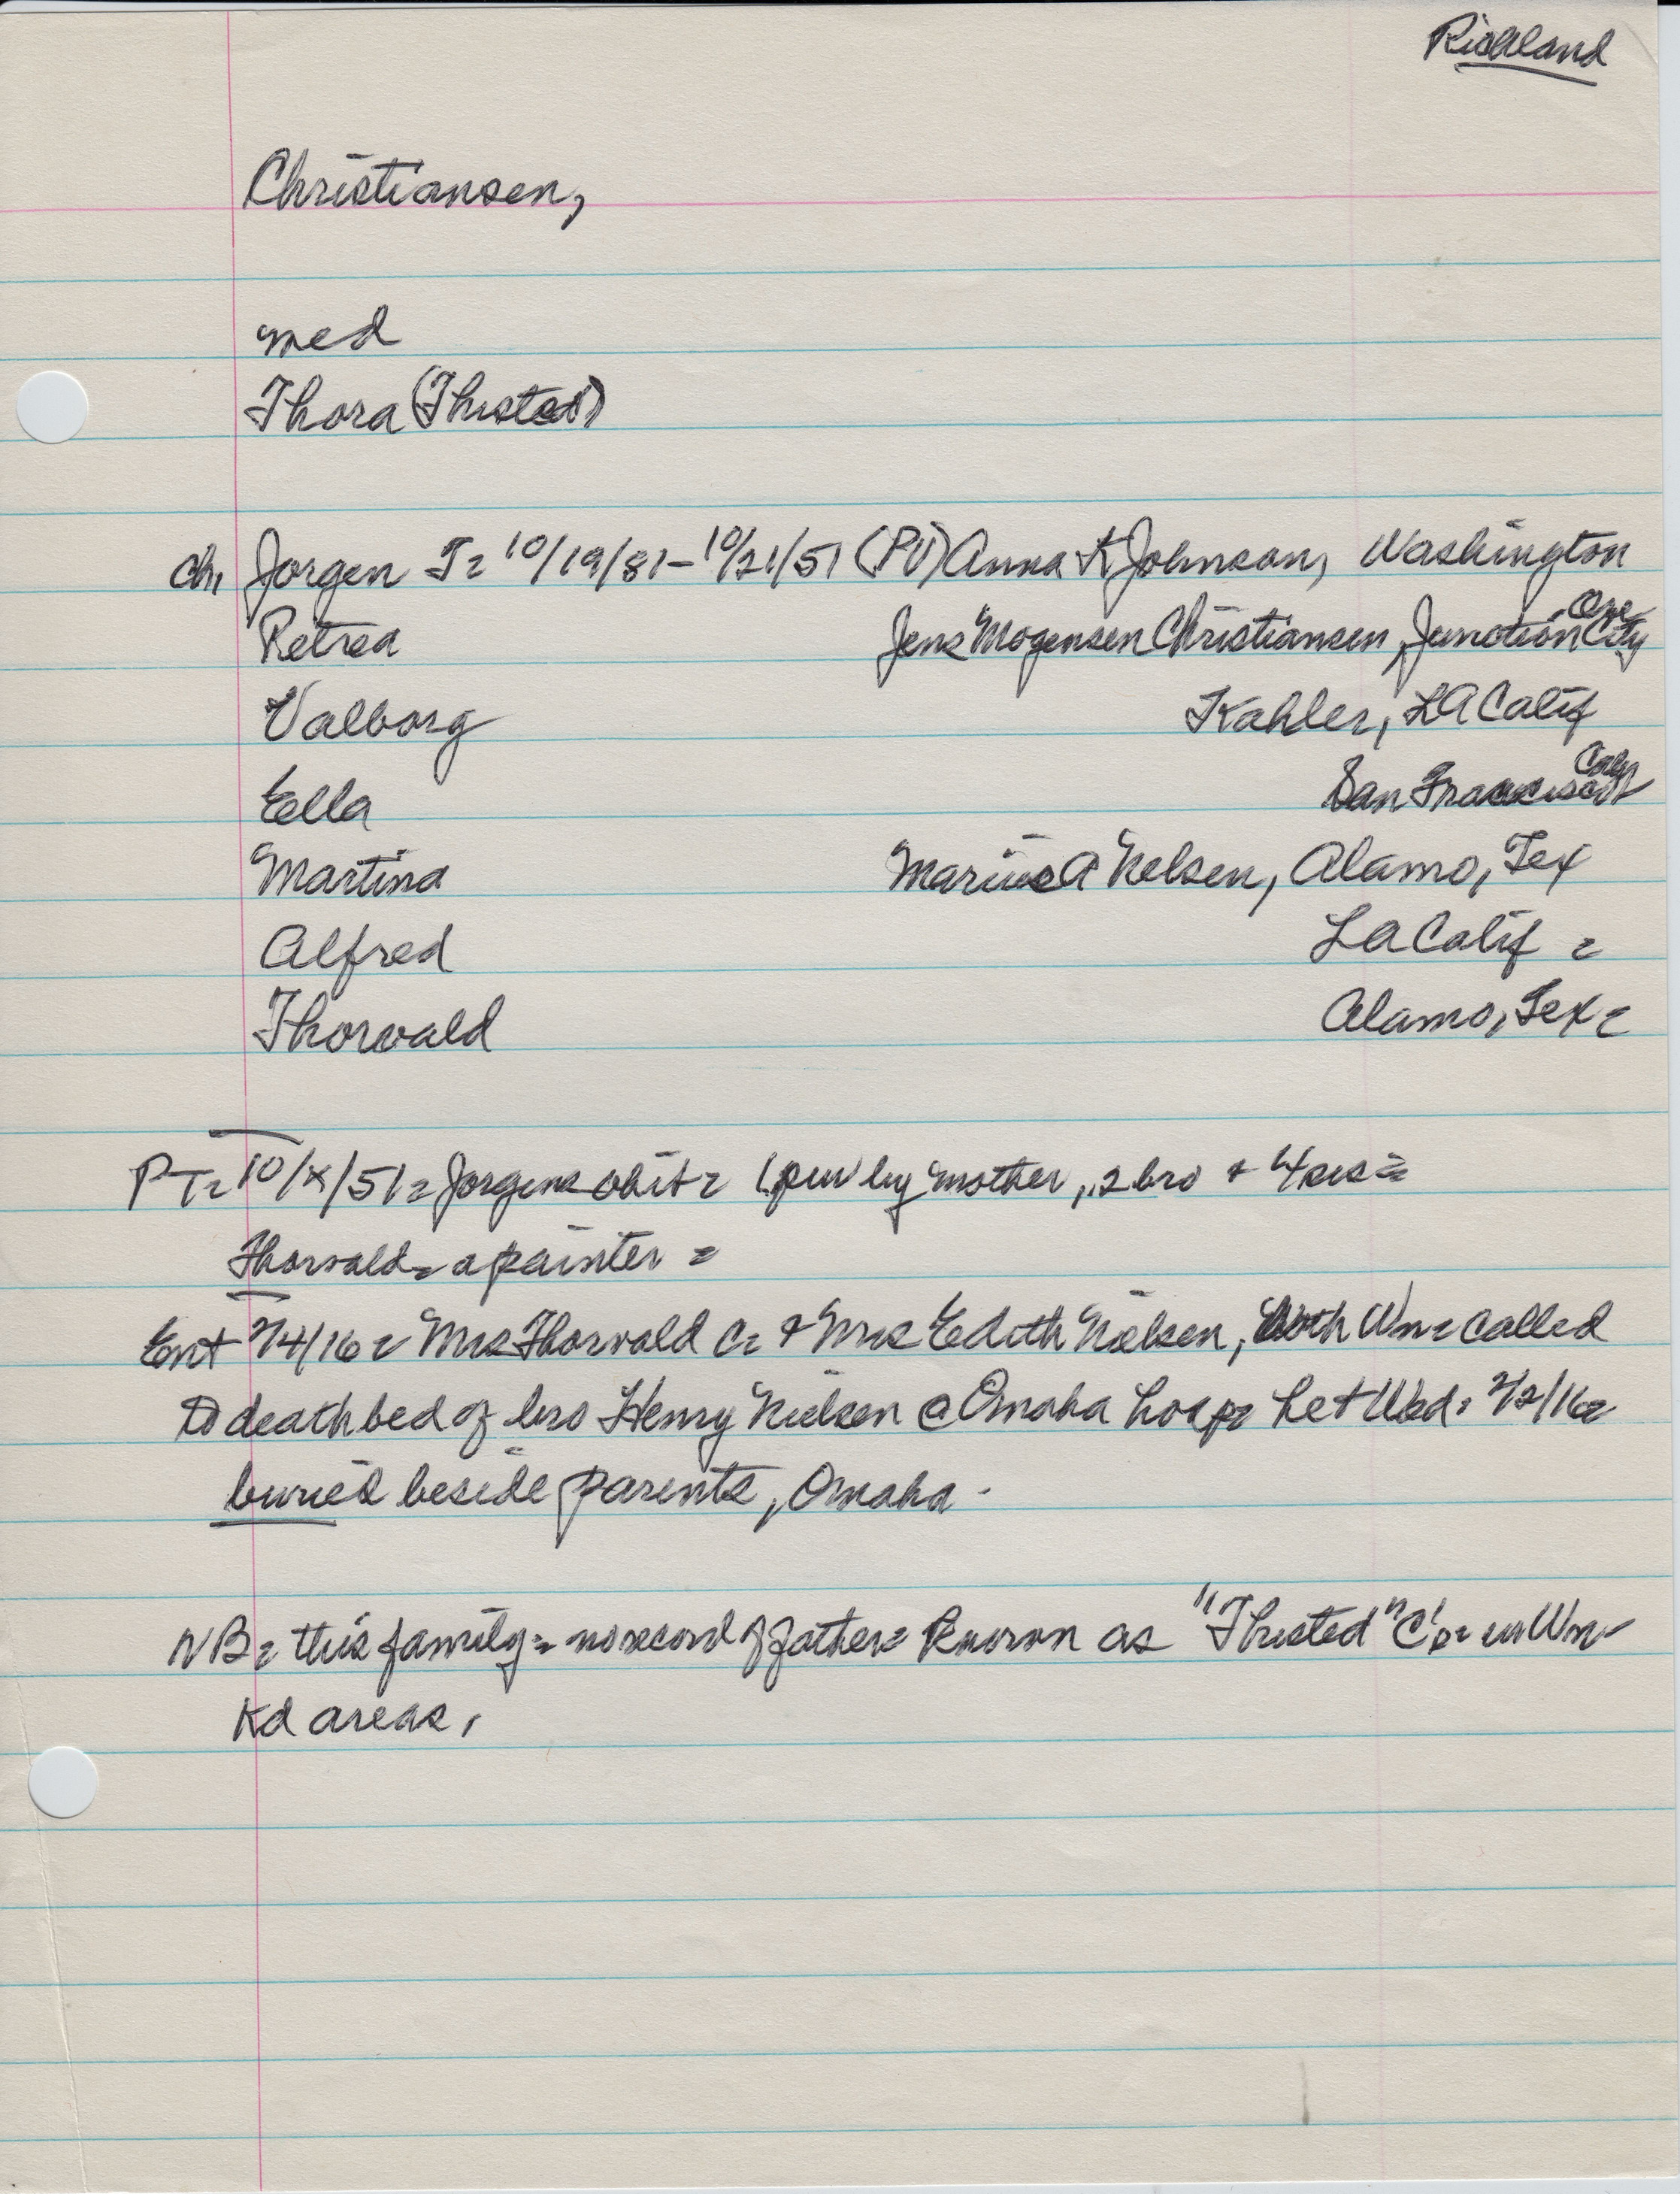 Richland
Christiansen,
med
Thora (Thisted)
Ch, Jorgen T= 10/19/81-10/21/51 (PV) Anna K Johnson, Washington
Petrea Jens Mogensen Christiansen, Junction City Ore
Valborg Kahler, LA Calif
Ella San Francisco Calif
Martina Marius A Nelsen, Alamo, Tex
Alfred LA Calif =
Thorvald Alamo, Tex =
PT= 10/x/51= Jorgens obit = by mother, 2 bro & 4 sis =
Thorvald = a painter =
Ent 2/4/16 = Mrs Thorvald C= & Mrs Edith Nielsen, both Wn= called
to deathbed of bro Henry Nielsen @ Omaha hosp= Wed. 2/2/16=
buried beside parents, Omaha -
NB= this family = no record of father= Known as "Thisted" C's= in Wn-
Kd areas,